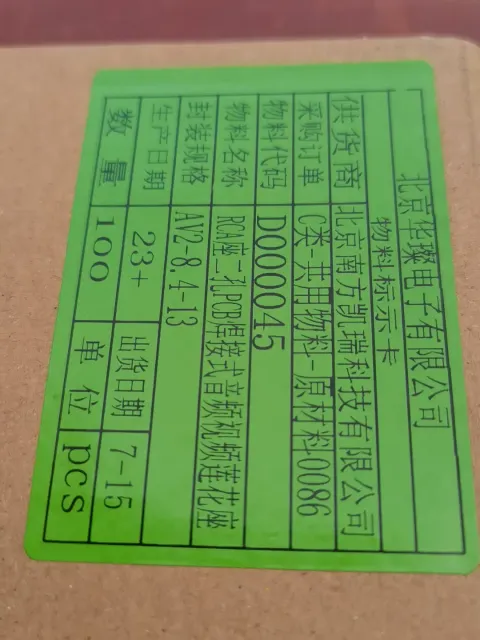 北京华璨电子有限公司
物料标示卡
供货商 北京南方凯瑞科技有限公司
采购订单 C类-共用物料-原材料0086
物料代码 D000045
物料名称 RCA座二孔PCB焊接式音频视频莲花座
封装规格 AV2-8.4-13
生产日期 23+ 出货日期 7-15
数量 100 单位 pcs